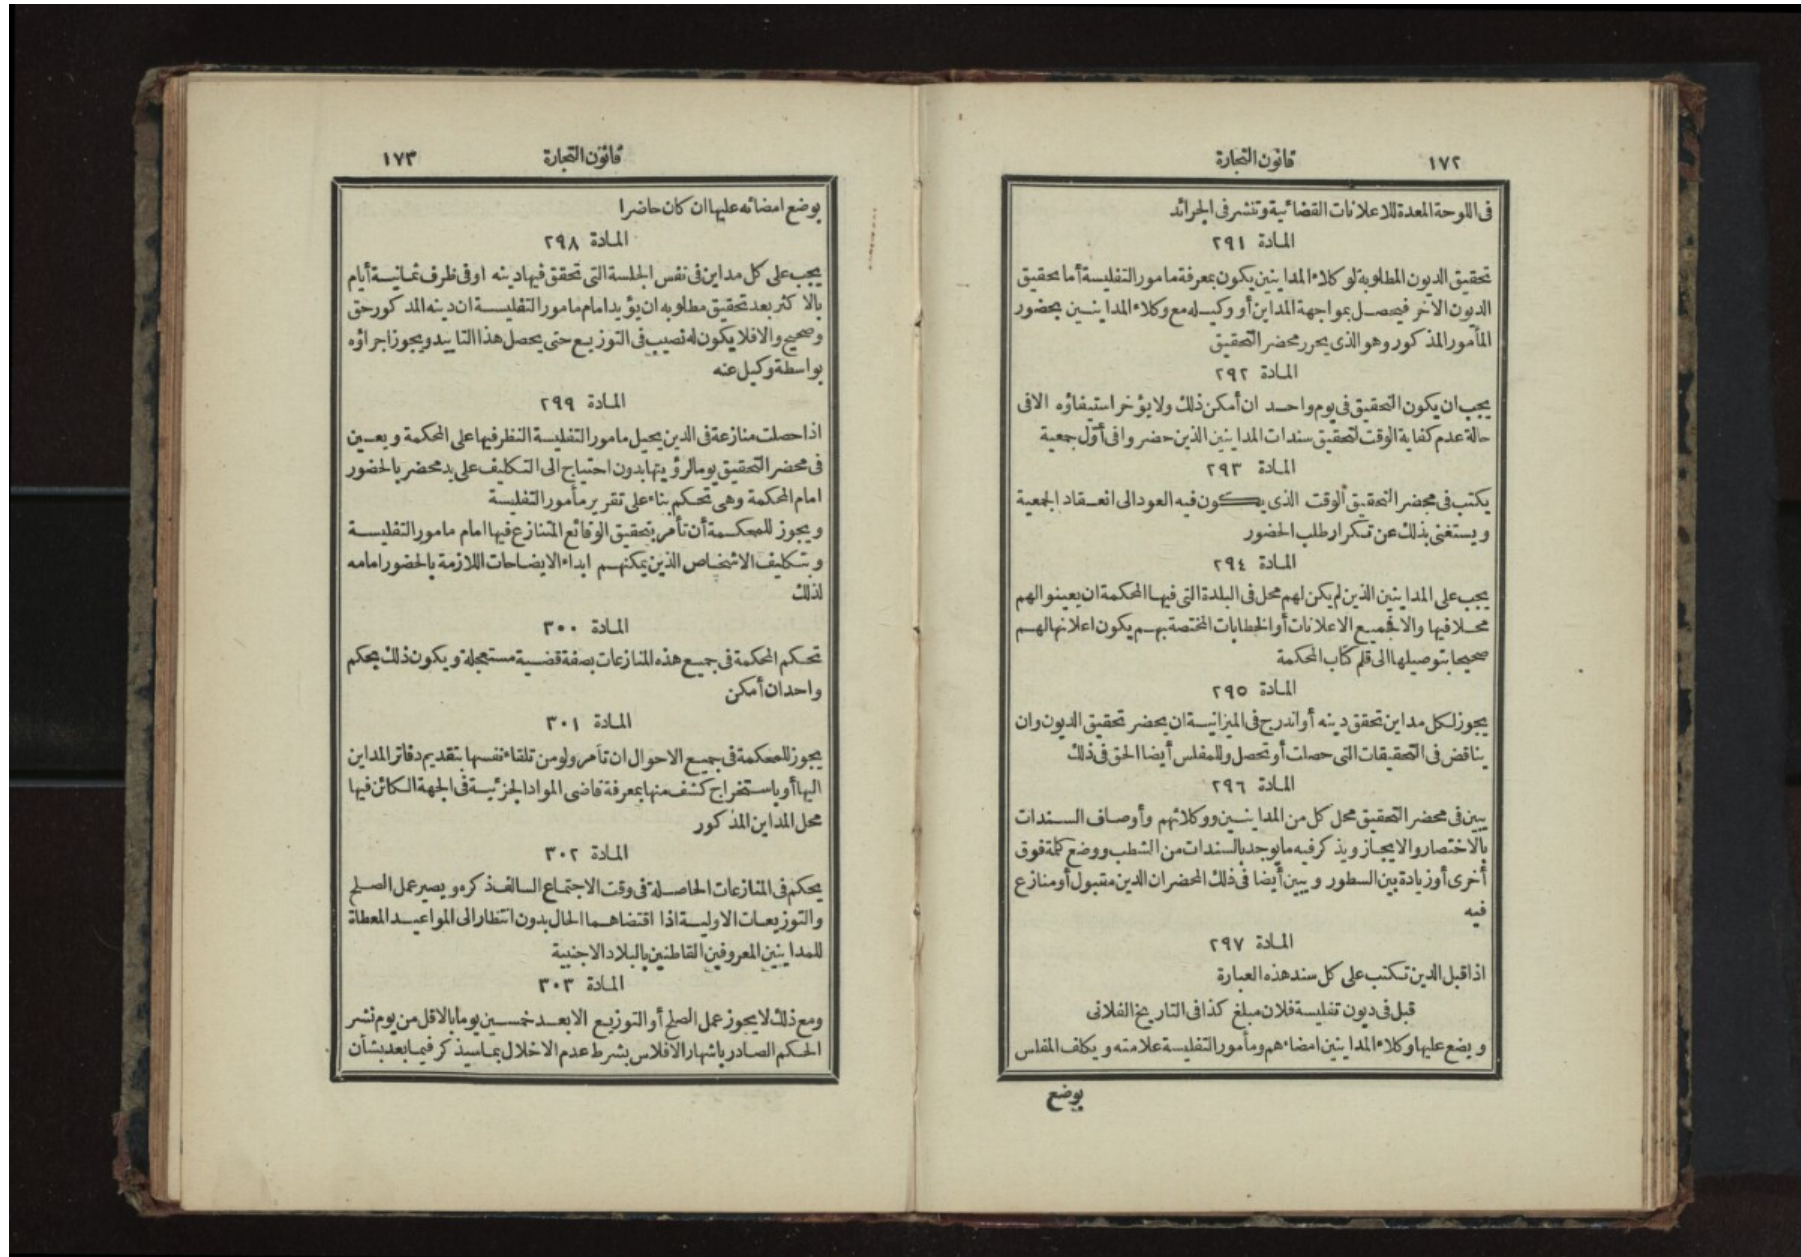 ١٧٢
قانون التجارة
فى اللوحة المعدة للاعلانات القضائية وتنشر فى الجرائد
المادة ٢٩١
تحقيق الديون المطلوبة لوكلاء المداينين يكون بمعرفة مامور التفليسة أما تحقيق
الديون الآخر فيحصل بمواجهة المداين أو وكيله مع وكلاء المداينين بحضور
المأمور المذكور وهو الذى يحرر محضر التحقيق
المادة ٢٩٢
يجب ان يكون التحقيق فى يوم واحد ان أمكن ذلك ولا يؤخر استيفاؤه الا فى
حالة عدم كفاية الوقت لتحقيق سندات المداينين الذين حضروا فى أول جمعية
المادة ٢٩٣
يكتب فى محضر التحقيق الوقت الذى يكون فيه العود الى انعقاد الجمعية
ويستغنى بذلك عن تكرار طلب الحضور
المادة ٢٩٤
يجب على المداينين الذين لم يكن لهم محل فى البلدة التى فيها المحكمة ان يعينوا لهم
محلا فيها والا فجميع الاعلانات أو الخطابات المختصة بهم يكون اعلانها لهم
صحيحا بتوصيلها الى قلم كتاب المحكمة
المادة ٢٩٥
يجوز لكل مداين تحقق دينه أو اندرج فى الميزانية ان يحضر تحقيق الديون وان
يناقض فى التحقيقات التى حصلت أو تحصل وللمفلس أيضا الحق فى ذلك
المادة ٢٩٦
يبين فى محضر التحقيق محل كل من المداينين ووكلائهم وأوصاف السندات
بالاختصار والايجاز ويذكر فيه ما يوجد بالسندات من الشطب ووضع كلمة فوق
أخرى أو زيادة بين السطور ويبين أيضا فى ذلك المحضر ان الدين مقبول أو منازع
فيه
المادة ٢٩٧
اذا قبل الدين تكتب على كل سند هذه العبارة
قبل فى ديون تفليسة فلان مبلغ كذا فى التاريخ الفلانى
ويضع عليها وكلاء المداينين امضاءهم ومأمور التفليسة علامته ويكلف المفلس
يوضع
قانون التجارة
١٧٣
يوضع امضائه عليها ان كان حاضرا
المادة ٢٩٨
يجب على كل مداين فى نفس الجلسة التى تحقق فيها دينه او فى ظرف ثمانية أيام
بالاكثر بعد تحقيق مطلوبه ان يؤيد امام مامور التفليسة ان دينه المذكور حق
وصحيح والا فلا يكون له نصيب فى التوزيع حتى يحصل هذا التاييد ويجوز اجراؤه
بواسطة وكيل عنه
المادة ٢٩٩
اذا حصلت منازعة فى الدين يحيل مامور التفليسة النظر فيها على المحكمة ويعين
فى محضر التحقيق يوما لرؤيتها بدون احتياج الى التكليف على يد محضر بالحضور
امام المحكمة وهى تحكم بناء على تقرير مأمور التفليسة
ويجوز للمحكمة أن تأمر بتحقيق الوقائع المتنازع فيها امام مامور التفليسة
وبتكليف الاشخاص الذين يمكنهم ابداء الايضاحات اللازمة بالحضور امامه
لذلك
المادة ٣٠٠
تحكم المحكمة فى جميع هذه المنازعات بصفة قضية مستعجلة ويكون ذلك بحكم
واحد ان أمكن
المادة ٣٠١
يجوز للمحكمة فى جميع الاحوال ان تأمر ولو من تلقاء نفسها بتقديم دفاتر المداين
اليها أو باستخراج كشف منها بمعرفة قاضى المواد الجزئية فى الجهة الكائن فيها
محل المداين المذكور
المادة ٣٠٢
يحكم فى المنازعات الحاصلة فى وقت الاجتماع السالف ذكره ويصير عمل الصلح
والتوزيعات الاولية اذا اقتضاهما الحال بدون انتظار الى المواعيد المعطاة
للمداينين المعروفين القاطنين بالبلاد الاجنبية
المادة ٣٠٣
ومع ذلك لا يجوز عمل الصلح أو التوزيع الا بعد خمسين يوما بالاقل من يوم نشر
الحكم الصادر باشهار الافلاس بشرط عدم الاخلال بما سيذكر فيما بعد بشأن